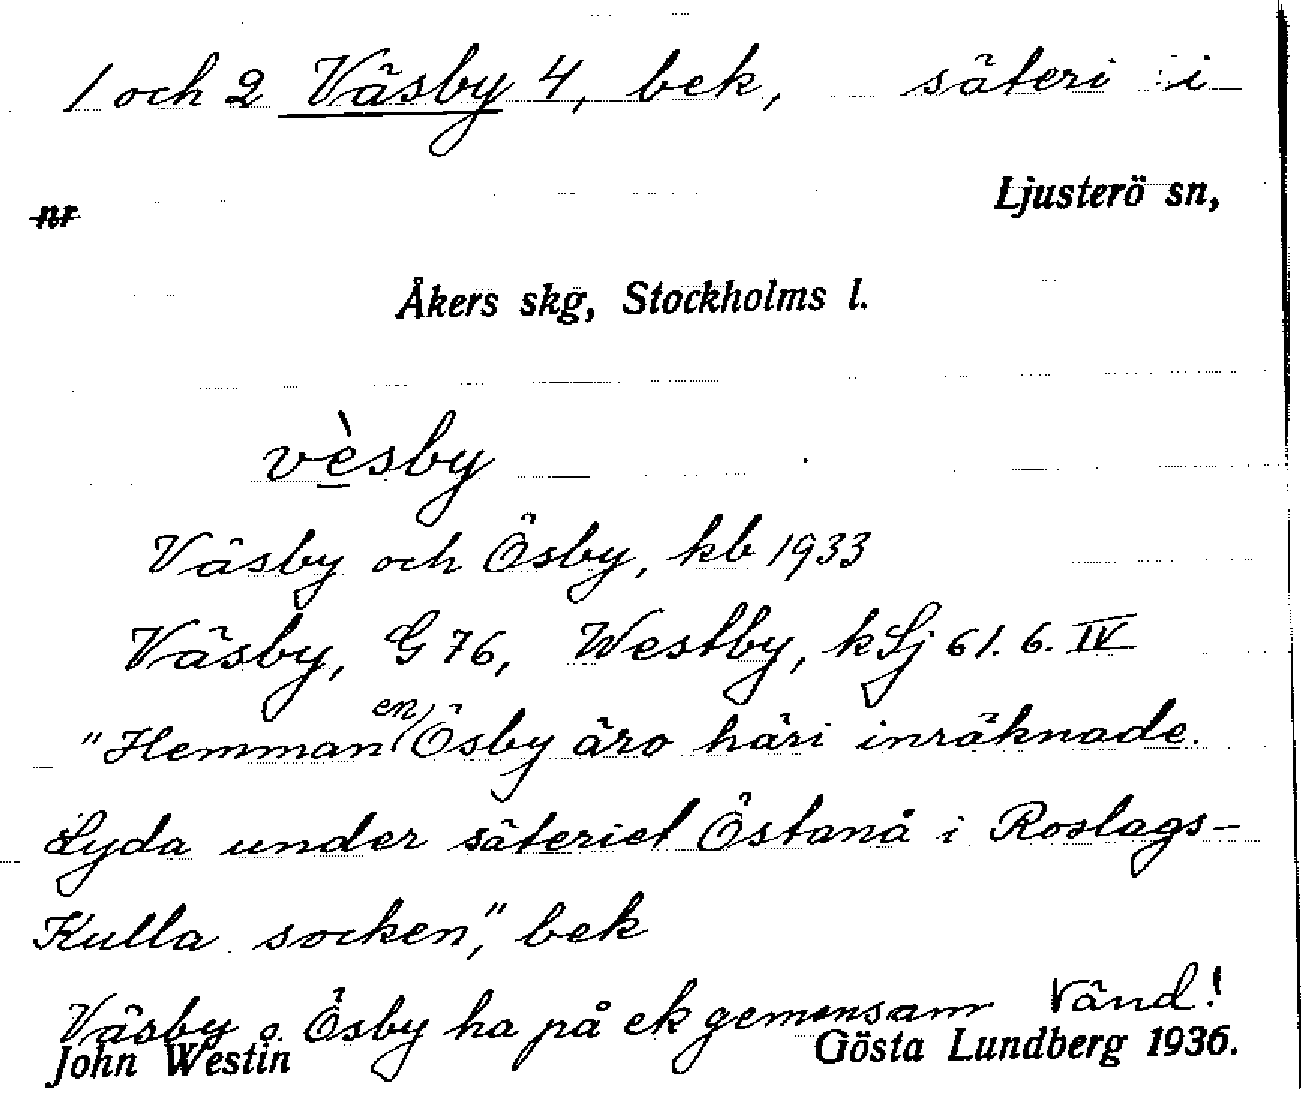 1 och 2 Väsby 4, bek, säteri i
nr Ljusterö sn,
Åkers skg, Stockholms l.
vèsby
Väsby och Ösby, kb 1933
Väsby, G 76, Westby, kLj 61. 6. IV
"Hemman(en) Ösby äro häri inräknade.
Lyda under säteriet Östanå i Roslags-
Kulla socken", bek
Väsby o. Ösby ha på ek gemensam Vänd!
John Westin Gösta Lundberg 1936.